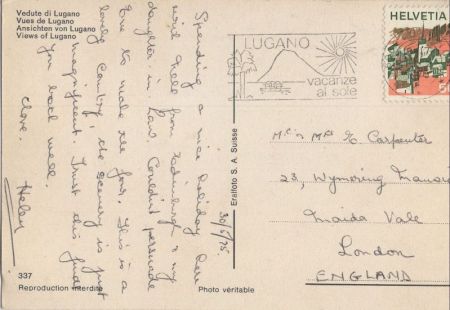 Vedute di Lugano
Vues de Lugano
Ansichten von Lugano
Views of Lugano
Spending a nice holiday here
with from Edinburgh & my
daughter in Law. Couldn't persuade
Eric to make the four. This is a
lovely Country, the scenery is just
magnificent. Trust this finds
you both well.
Love. Helen
30/5/75.
337
Reproduction interdite
Photo véritable
Eralfoto S. A. Suisse
LUGANO
vacanze
al sole
HELVETIA
50
Mr & Mrs E. Carpenter
23, Wymering Mansions
Maida Vale
London
ENGLAND